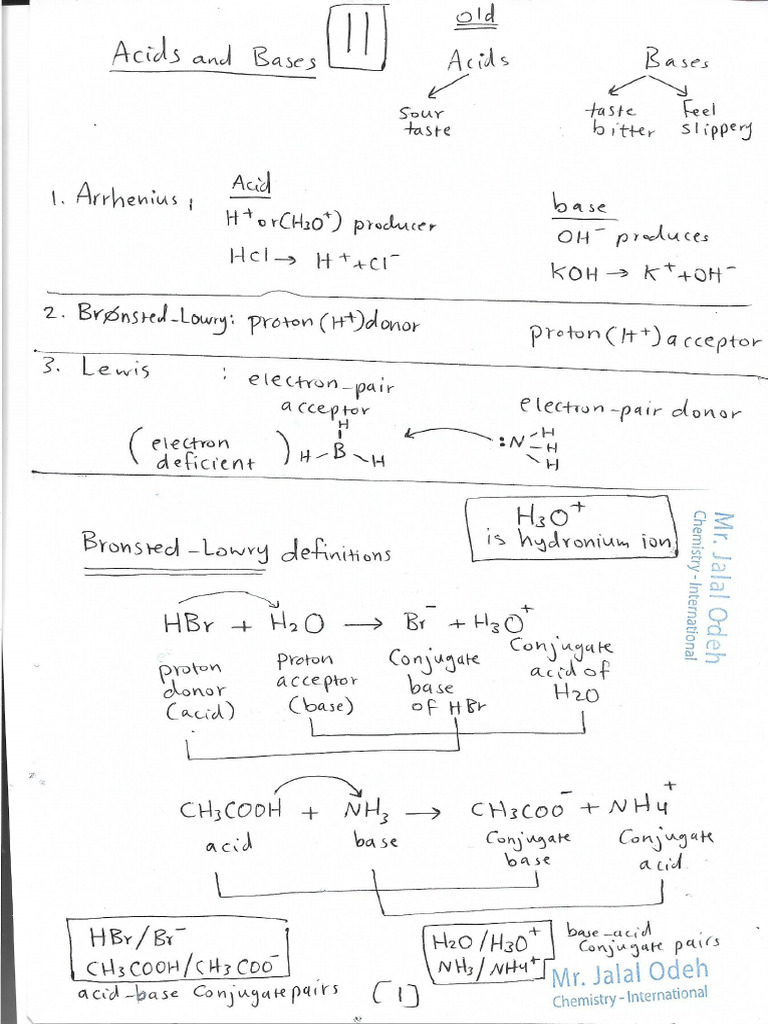 Acids and Bases
11
old
Acids
Bases
Sour
taste
taste
bitter
Feel
slippery
1. Arrhenius :
Acid
H⁺ or (H3O⁺) producer
HCl → H⁺ + Cl⁻
base
OH⁻ produces
KOH → K⁺ + OH⁻
2. Brønsted-Lowry: proton (H⁺) donor
proton (H⁺) acceptor
3. Lewis :
electron-pair
acceptor
electron-pair donor
(electron
deficient)
H
H-B-H
:N-H
-H
-H
H3O⁺
is hydronium ion
Mr. Jalal Odeh
Chemistry - International
Bronsted-Lowry definitions
HBr + H2O → Br⁻ + H3O⁺
proton
donor
(acid)
Proton
acceptor
(base)
Conjugate
base
of HBr
Conjugate
acid of
H2O
CH3COOH + NH3 → CH3COO⁻ + NH4⁺
acid
base
Conjugate
base
Conjugate
acid
HBr/Br⁻
CH3COOH/CH3COO⁻
acid-base Conjugate pairs
[1]
H2O/H3O⁺
NH3/NH4⁺
base-acid
Conjugate pairs
Mr. Jalal Odeh
Chemistry - International